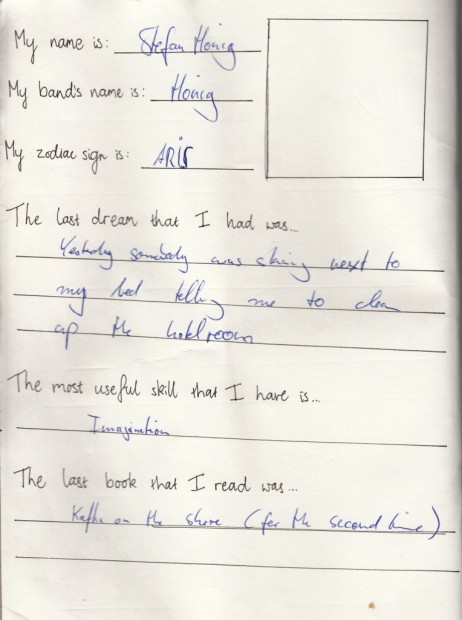 My name is: Stefan Honig
My band's name is: Honig
My zodiac sign is: ARIS
The last dream that I had was...
Yesterday somebody was standing next to
my bed telling me to clean
up the hotelroom
The most useful skill that I have is...
Imagination
The last book that I read was...
Kafka on the shore (for the second time)